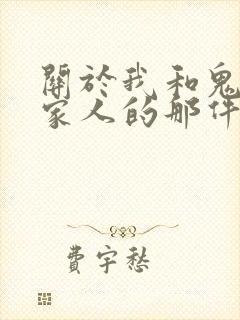 關於我和鬼
家人的那件
費宇愁